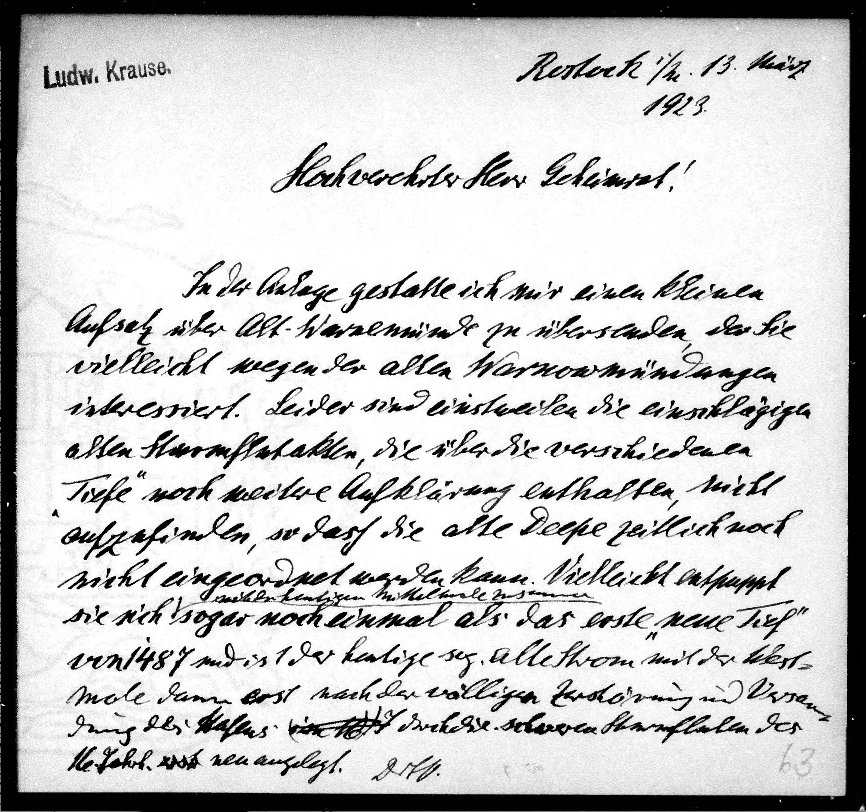 Ludw. Krause.
Rostock i/M. 13. März
1923.
Hochverehrter Herr Geheimrat!
In der Anlage gestatte ich mir einen kleinen
Aufsatz über Alt-Warnemünde zu übersenden, der Sie
vielleicht wegen der alten Warnowmündungen
interessiert. Leider sind einstweilen die einschlägigen
alten Sturmflutakten, die über die verschiedenen
„Tiefe“ noch weitere Aufklärung enthalten, nicht
aufzufinden, so dass die alte Deepe zeitlich noch
nicht eingeordnet werden kann. Vielleicht entpuppt
mit der heutigen Mittelmole zusammen
sie sich sogar noch einmal als das erste „neue Tief“
von 1487 und ist der heutige sog. alte Strom mit der West-
mole dann erst nach der völligen Zerstörung und Versan-
dung des Hafens durch die schweren Sturmfluten des
16 Jahrh. neu angelegt.
63